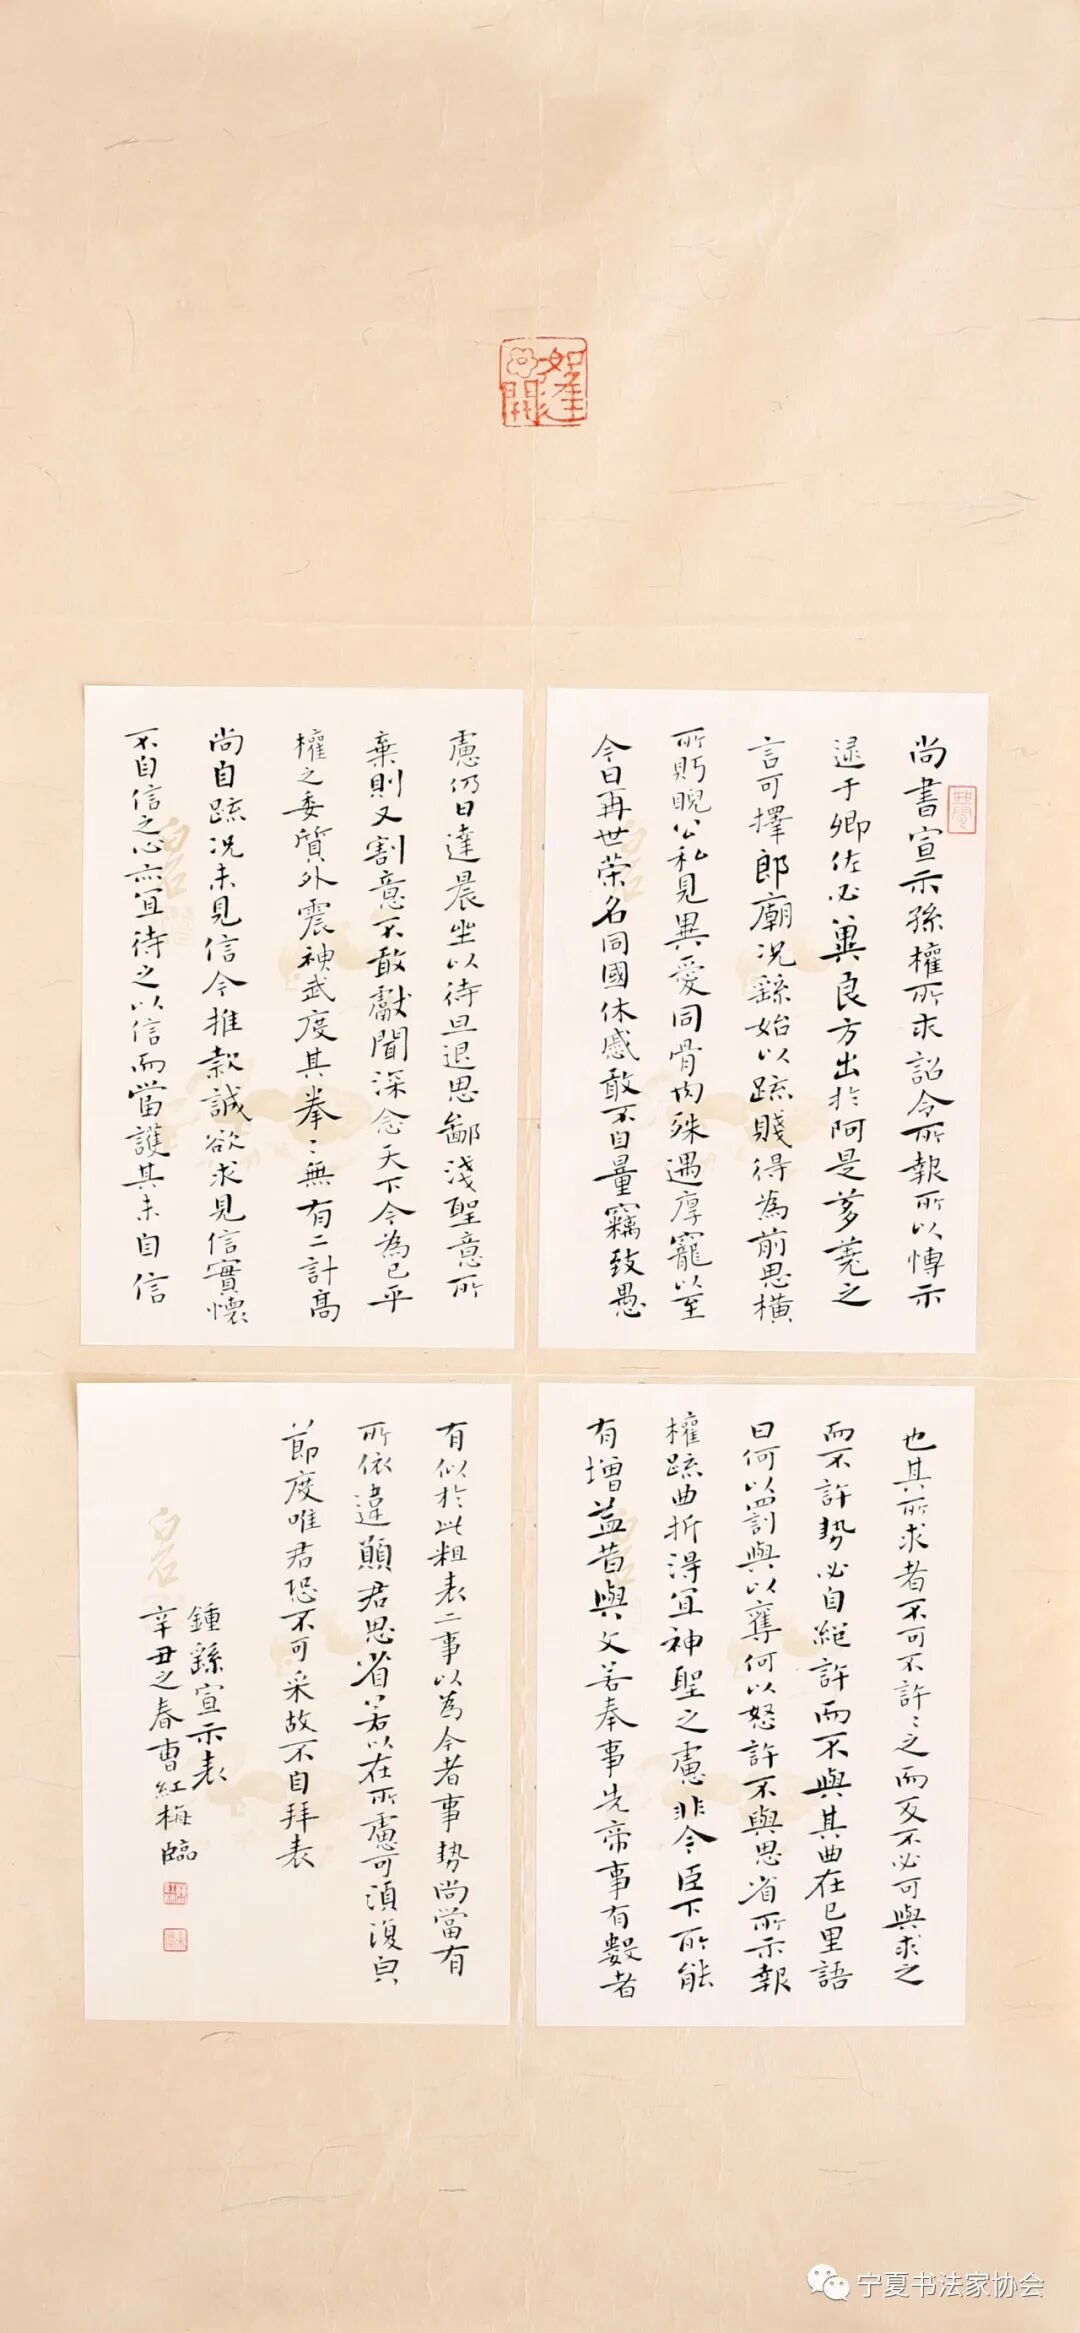 如逢花開
尚書宣示孫權所求詔令所報所以博示
逮于卿佐必冀良方出於阿是芻蕘之
言可擇郎廟況繇始以疏賤得為前恩橫
所眄睨公私見異愛同骨肉殊遇厚寵以至
今日再世榮名同國休慼敢不自量竊致愚
慮仍日達晨坐以待旦退思鄙淺聖意所
棄則又割意不敢獻聞深念天下今為已平
權之委質外震神武度其拳〻無有二計高
尚自疏況未見信今推款誠欲求見信實懷
不自信之心亦宜待之以信而當護其未自信
也其所求者不可不許〻之而反不必可與求之
而不許勢必自絕許而不與其曲在己里語
曰何以罰與以奪何以怒許不與思省所示報
權疏曲折得宜神聖之慮非今臣下所能
有增益昔與文若奉事先帝事有數者
有似於此粗表二事以為今者事勢尚當有
所依違願君思省若以在所慮可須復皃
節度唯君恐不可采故不自拜表
鍾繇宣示表
辛丑之春曹紅梅臨
宁夏书法家协会